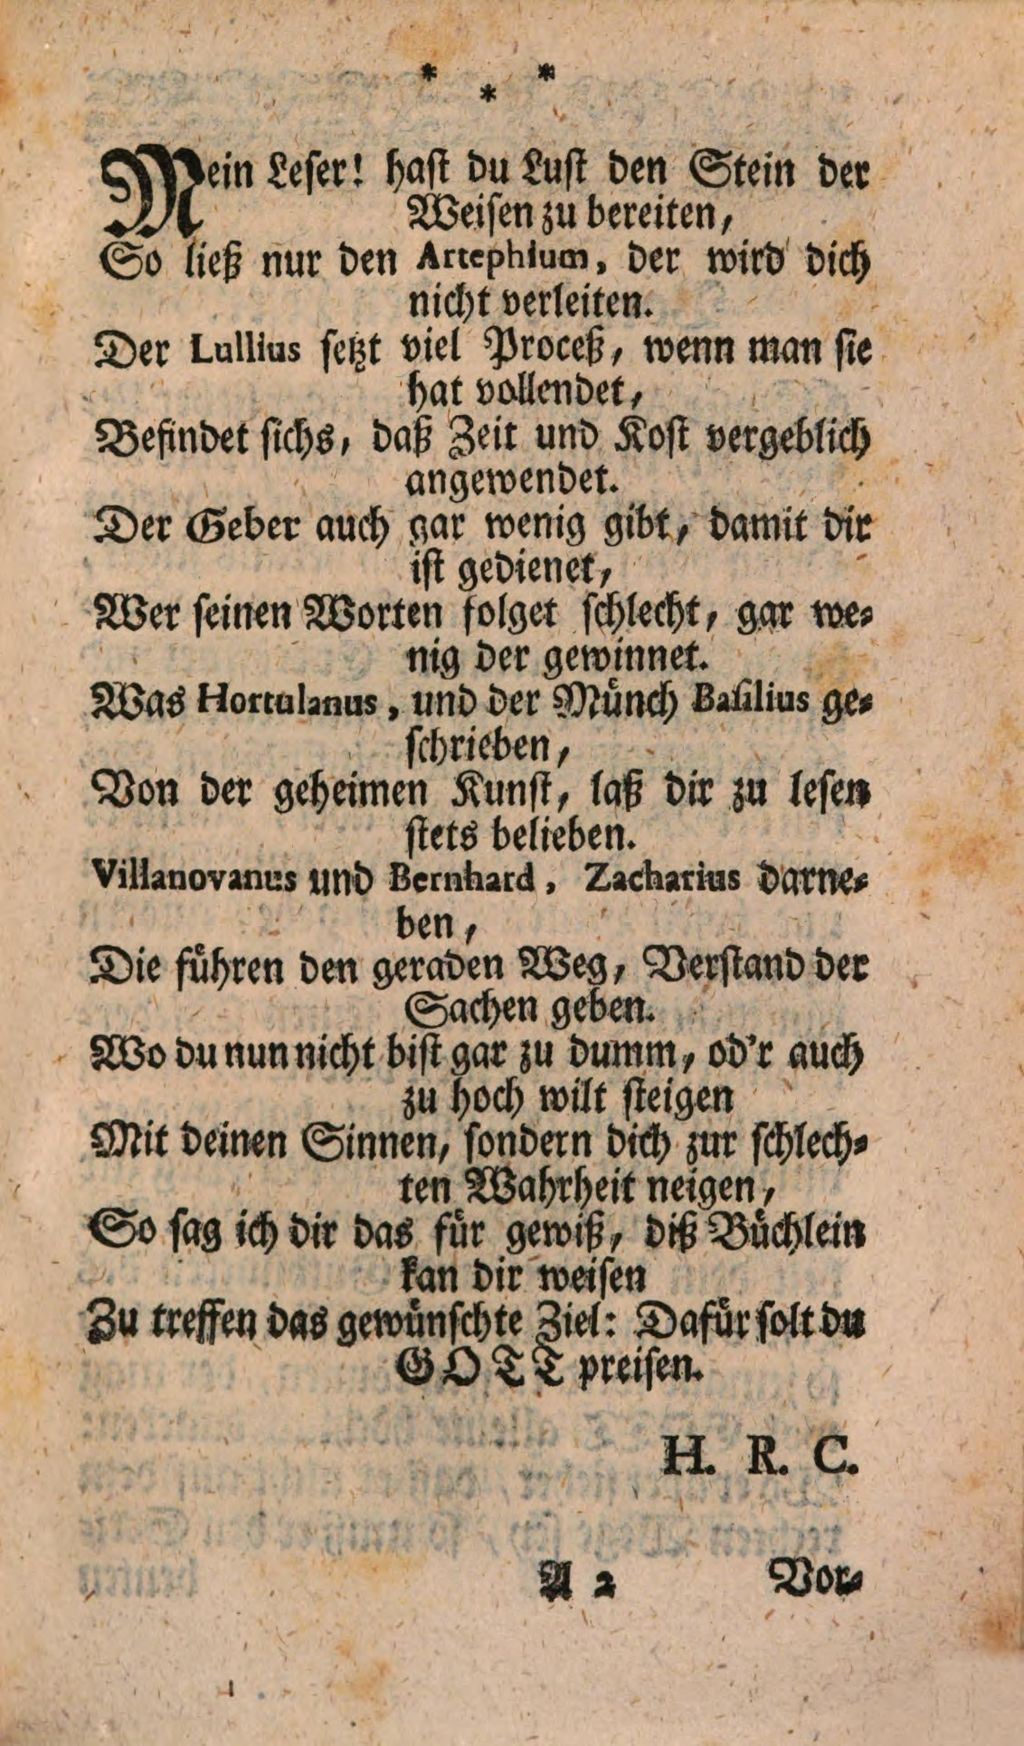 * * *
Mein Leser! hast du Lust den Stein der
Weisen zu bereiten,
So ließ nur den Artephium, der wird dich
nicht verleiten.
Der Lullius setzt viel Proceß, wenn man sie
hat vollendet,
Befindet sichs, daß Zeit und Kost vergeblich
angewendet.
Der Geber auch gar wenig gibt, damit dir
ist gedienet,
Wer seinen Worten folget schlecht, gar we-
nig der gewinnet.
Was Hortulanus, und der Münch Basilius ge-
schrieben,
Von der geheimen Kunst, laß dir zu lesen
stets belieben.
Villanovanus und Bernhard, Zacharius darne-
ben,
Die führen den geraden Weg, Verstand der
Sachen geben.
Wo du nun nicht bist gar zu dumm, od'r auch
zu hoch wilt steigen
Mit deinen Sinnen, sondern dich zur schlech-
ten Wahrheit neigen,
So sag ich dir das für gewiß, diß Büchlein
kan dir weisen
Zu treffen das gewünschte Ziel: Dafür solt du
GOTT preisen.
H. R. C.
A 2 Vor-